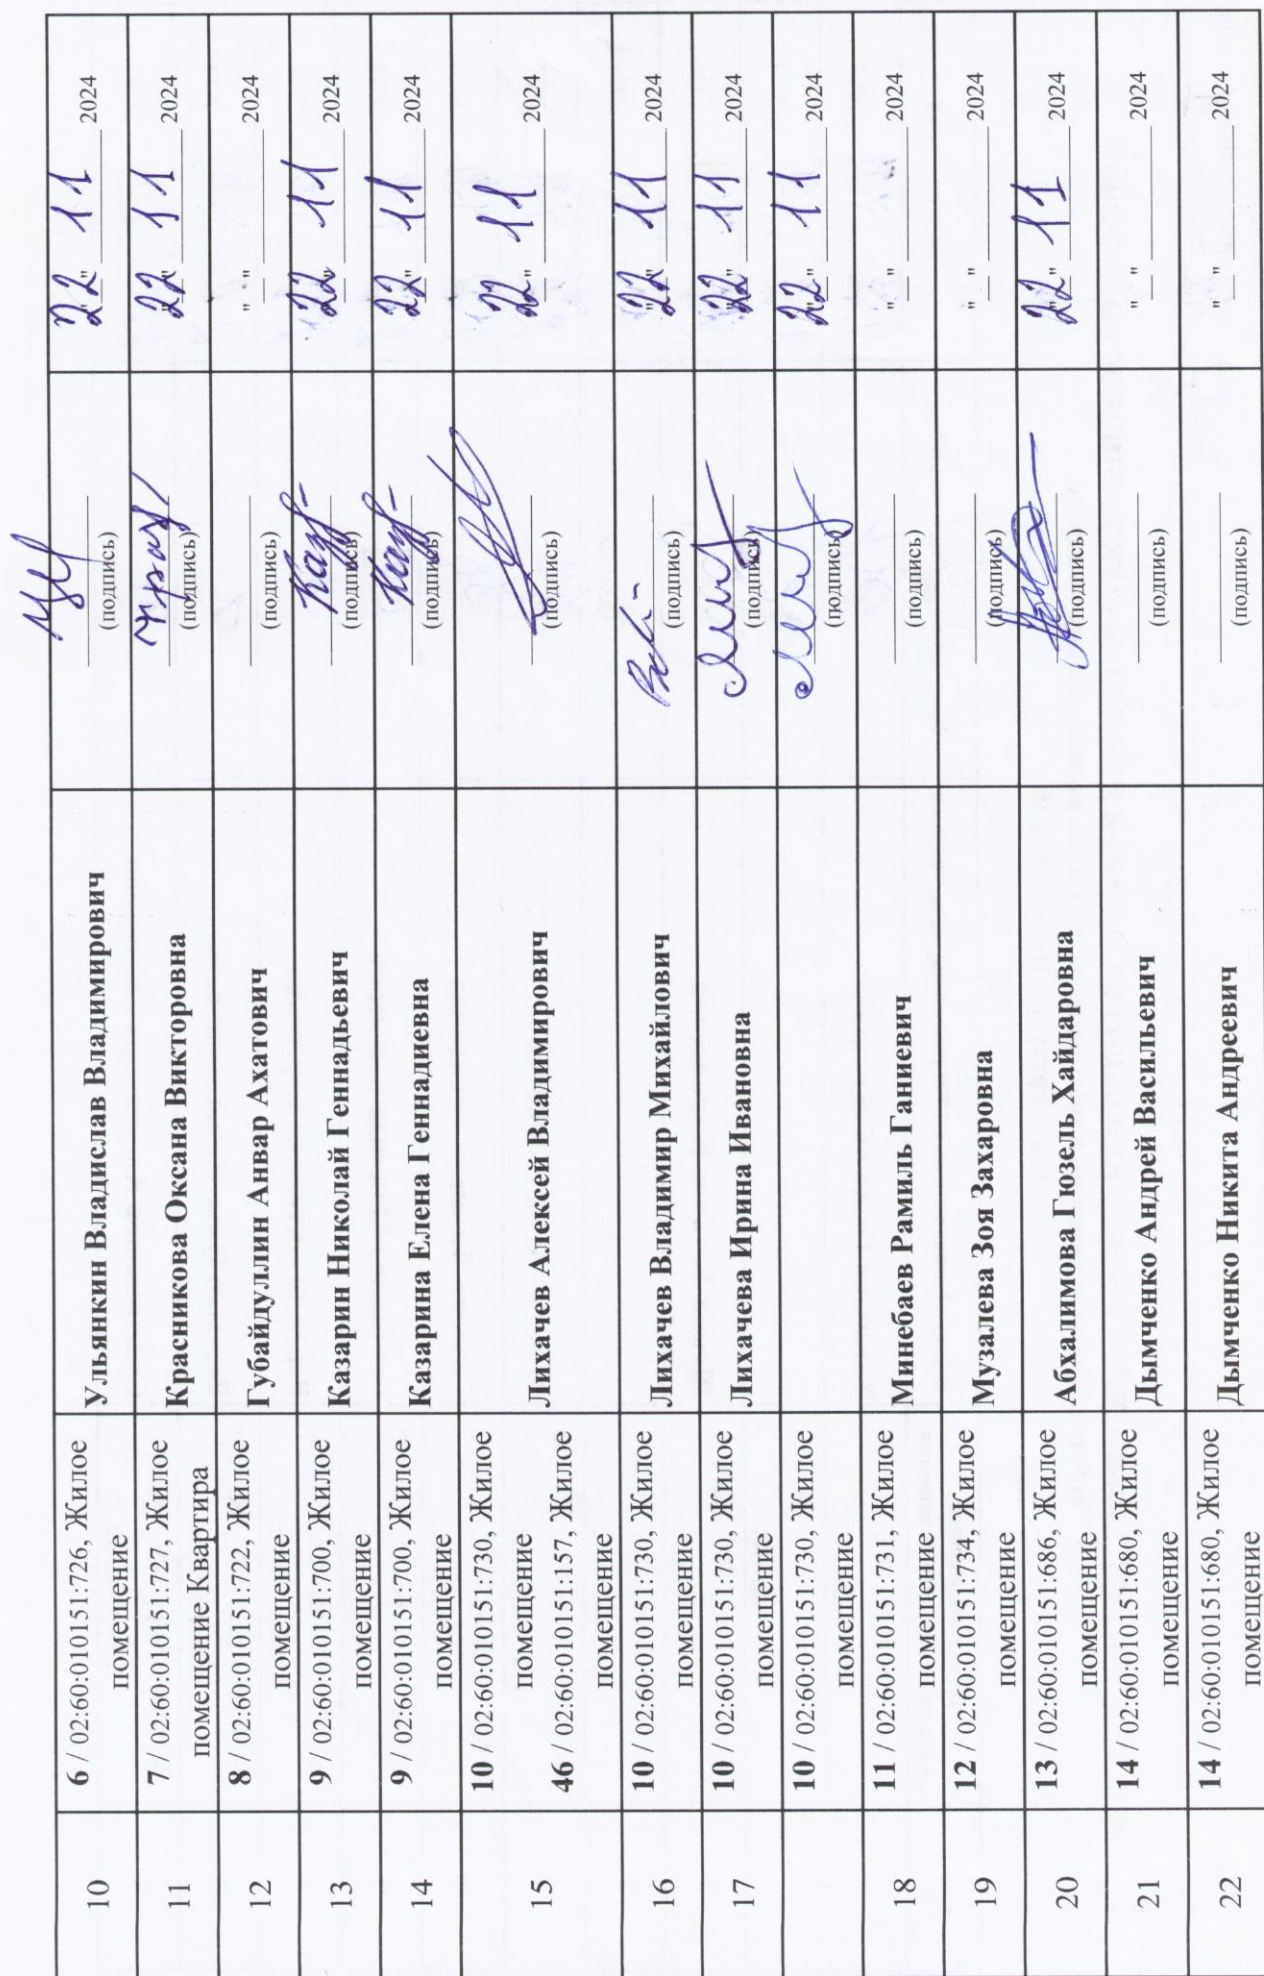 10 6 / 02:60:010151:726, Жилое помещение Ульянкин Владислав Владимирович (подпись) "22" 11 2024
11 7 / 02:60:010151:727, Жилое помещение Квартира Красникова Оксана Викторовна (подпись) "22" 11 2024
12 8 / 02:60:010151:722, Жилое помещение Губайдуллин Анвар Ахатович (подпись) " " 2024
13 9 / 02:60:010151:700, Жилое помещение Казарин Николай Геннадьевич (подпись) "22" 11 2024
14 9 / 02:60:010151:700, Жилое помещение Казарина Елена Геннадиевна (подпись) "22" 11 2024
15 10 / 02:60:010151:730, Жилое помещение 46 / 02:60:010151:157, Жилое помещение Лихачев Алексей Владимирович (подпись) "22" 11 2024
16 10 / 02:60:010151:730, Жилое помещение Лихачев Владимир Михайлович (подпись) "22" 11 2024
17 10 / 02:60:010151:730, Жилое помещение Лихачева Ирина Ивановна (подпись) "22" 11 2024
10 / 02:60:010151:730, Жилое помещение (подпись) "22" 11 2024
18 11 / 02:60:010151:731, Жилое помещение Минебаев Рамиль Ганиевич (подпись) " " 2024
19 12 / 02:60:010151:734, Жилое помещение Музалева Зоя Захаровна (подпись) " " 2024
20 13 / 02:60:010151:686, Жилое помещение Абхалимова Гюзель Хайдаровна (подпись) "22" 11 2024
21 14 / 02:60:010151:680, Жилое помещение Дымченко Андрей Васильевич (подпись) " " 2024
22 14 / 02:60:010151:680, Жилое помещение Дымченко Никита Андреевич (подпись) " " 2024